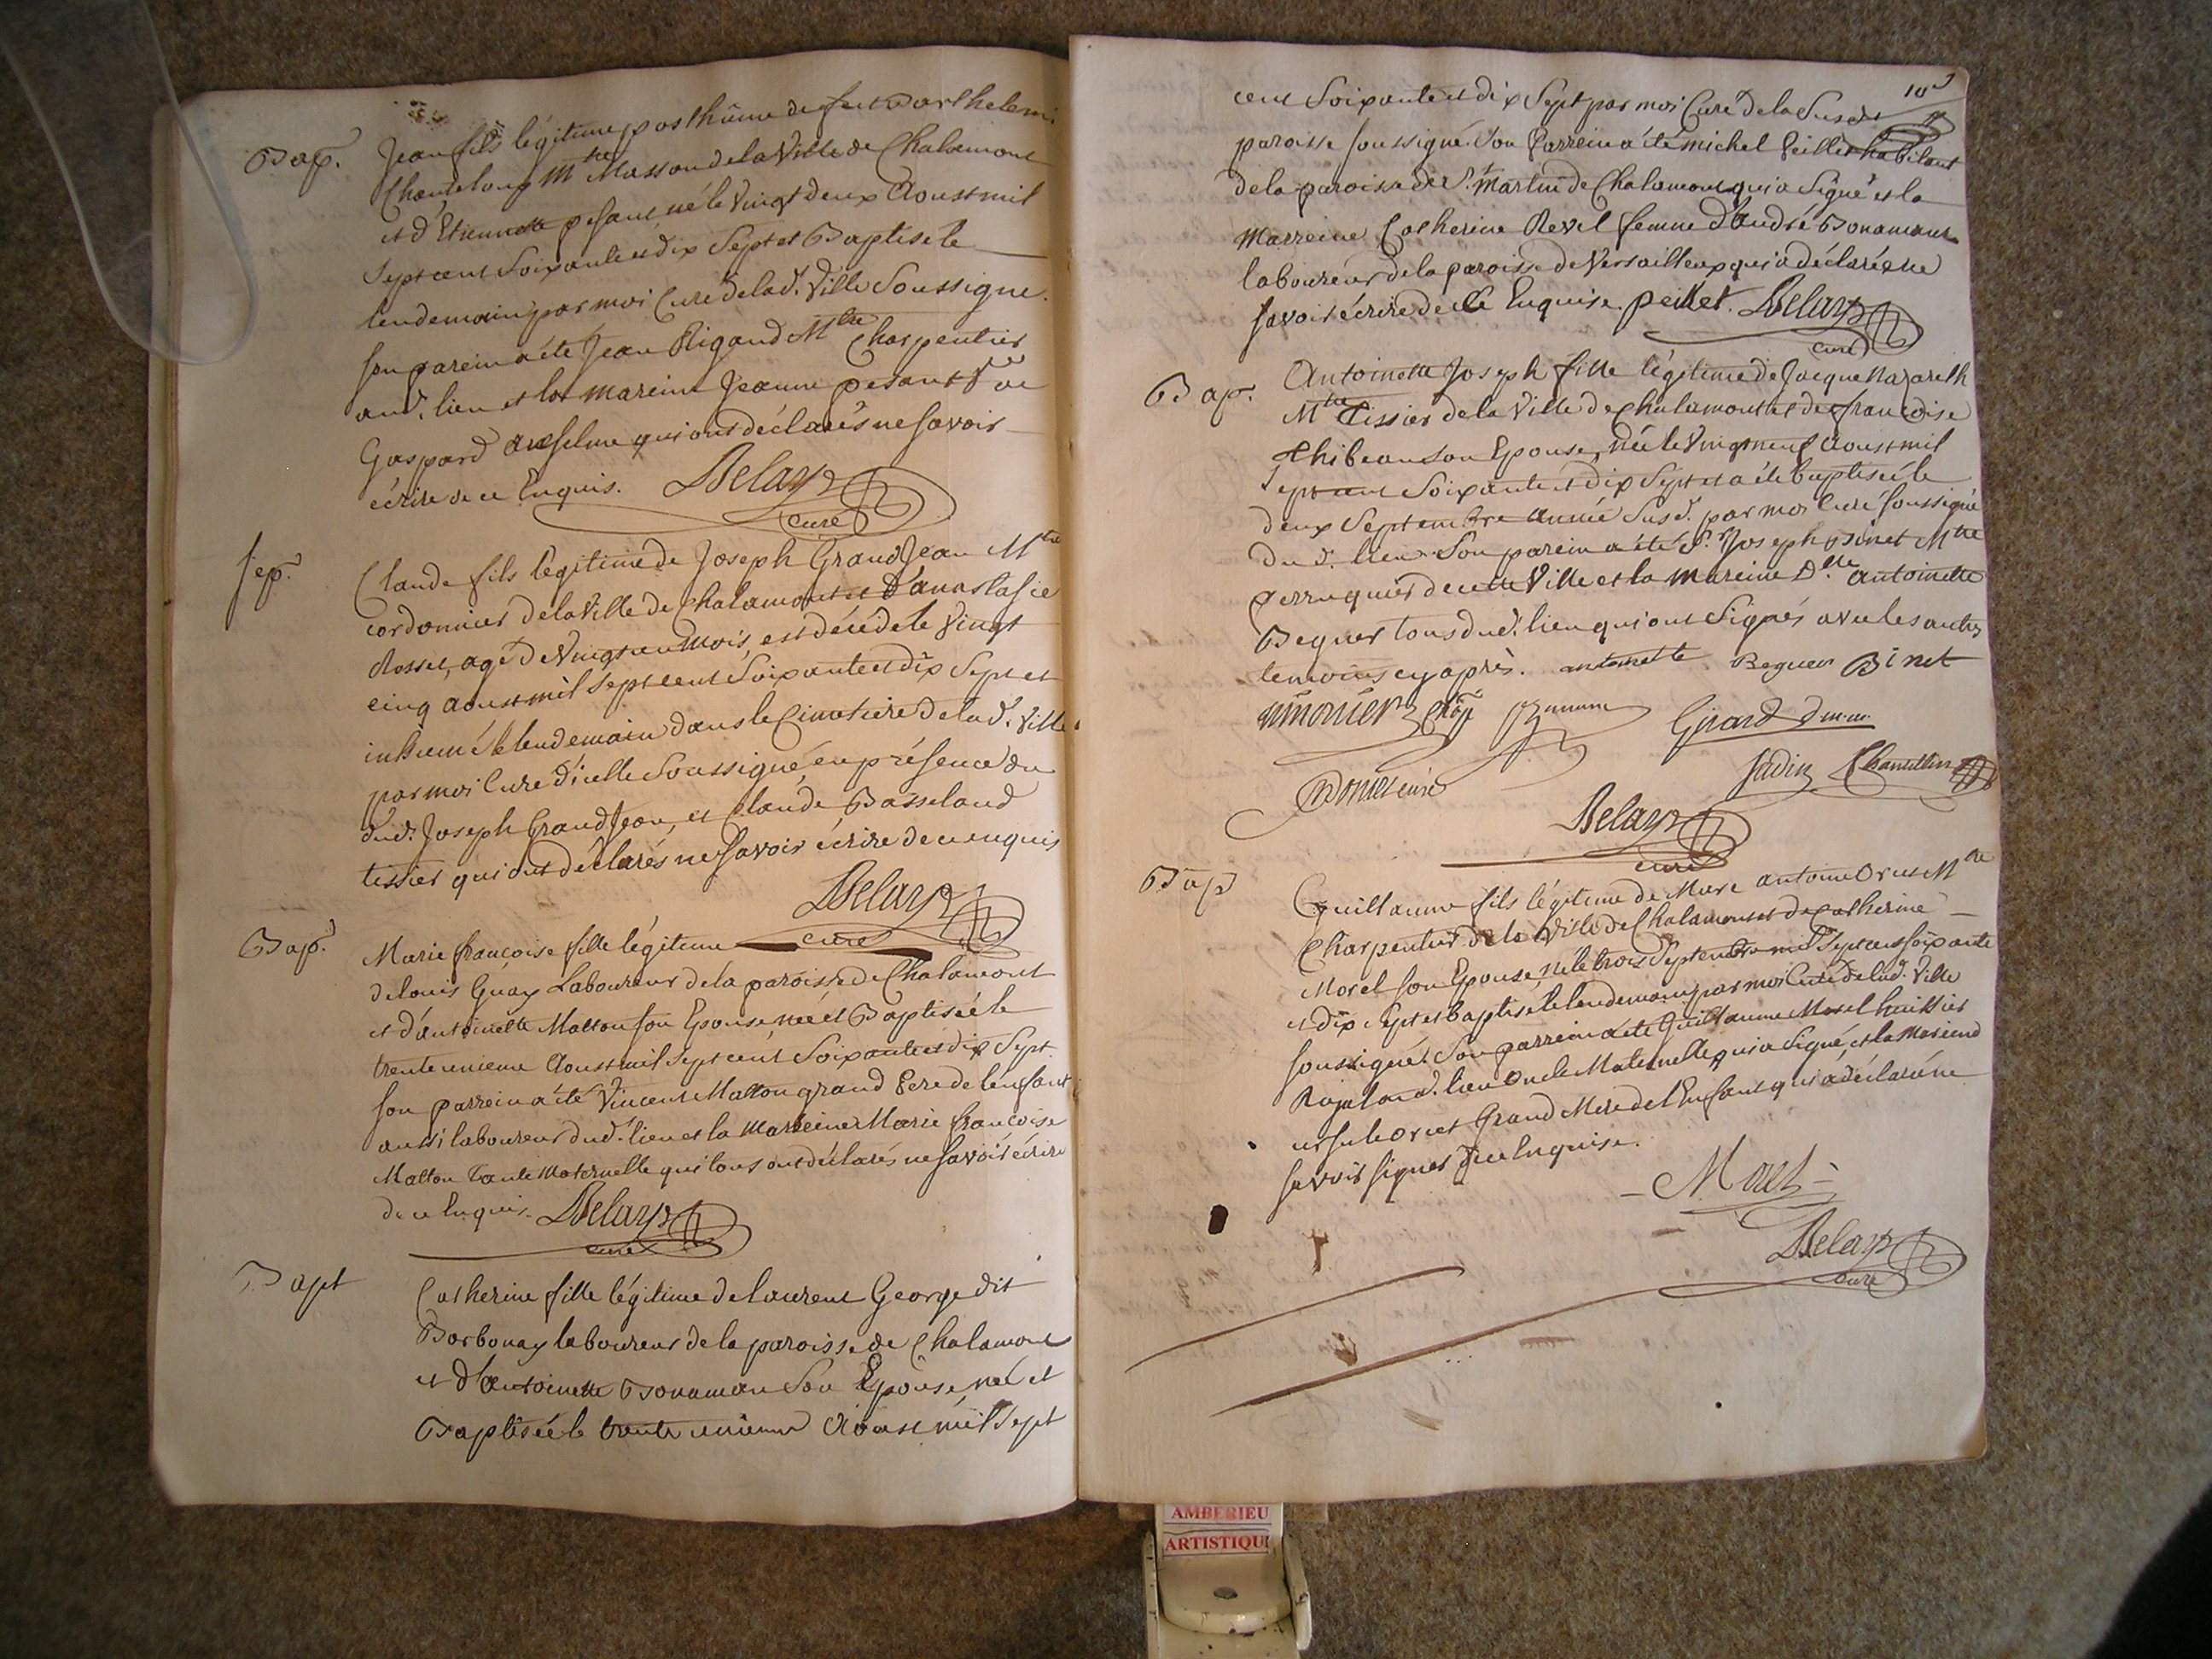 Bap.t
Jean fils légitime posthûme de feu Barthelemi
Chanteloup M.tre Masson de la Ville de Chalamont
et d'Etiennette pesant né le Vingt deux Aoust mil
Sept cent Soixante et dix Sept et Baptisé le
lendemain par moi Curé de lad. Ville Soussigné.
son parein a été Jean Rigaud M.tre Charpentier
aud. lieu et la mareine Jeanne pesant V.ve
Gaspard anselme qui ont déclarés ne savoir
écrire de ce Enquis. Delarz
curé
Sep.
Claude fils légitime de Joseph GrandJean M.tre
cordonnier de la Ville de Chalamont et d'anastasie
Rosset, agé de Vingt un mois, est décédé le Vingt
cinq aoust mil Sept cent Soixante et dix Sept et
inhumé le lendemain dans le Cimetiere de lad. Ville
par moi Curé d'icelle Soussigné, en présence du
dud. Joseph GrandJean, et Claude Basseland
tissier qui ont déclarés ne savoir écrire de ce enquis
Delarz
curé
Bap.t
Marie françoise fille légitime
de louis Guay Laboureur de la paroisse de Chalamont
et d'antoinette Matton son Epouse, née et Baptisée le
trente unieme Aoust mil Sept cent Soixante et dix Sept.
son parrein a été Vincent Matton grand Pere de l'enfant
aussi laboureur dud. lieu et la Marreine Marie françoise
Matton Tante Maternelle qui tous ont déclarés ne savoir écrire
de ce Enquis. Delarz
curé
Bapt
Catherine fille légitime de laurent George dit
Borbonay laboureur de la paroisse de Chalamont
et d'antoinette Bonaman Son Epouse, née et
Baptisée le trente unieme Aoust mil Sept
cent Soixante et dix Sept par moi Curé de la Susd.
paroisse soussigné. Son Parrein a été michel Peillet habitant
de la paroisse de S.t Martin de Chalamont qui a Signé et la
Marreine Catherine Revel femme d'andré Bonamant
laboureur de la paroisse de Versailleux qui a déclaré ne
savoir écrire de ce Enquise. peillet. Delarz
curé
Bap.
Antoinette Joseph fille légitime de Jacque Nazareth
M.tre Tissier de la Ville de Chalamont et de françoise
Thibeau son Epouse, née le Vingt neuf Aoust mil
Sept cent Soixante et dix Sept et a été baptisée le
deux Septembre année Susd. par moi Curé soussigné
dud. lieu. Son parein a été S.r Joseph Binet M.tre
perruquier de cette Ville et la mareine D.lle antoinette
Beguer tous dud. lieu qui ont Signés avec les autres
temoins cy après. antoinette Beguer Binet
Girard
Jadin
Delarz
curé
Bap
Guillaume fils légitime de Marc antoine Orset M.tre
Charpentier de la Ville de Chalamont et de Catherine
Morel son Epouse, né le trois Septembre mil Sept cent soixante
et dix Sept et baptisé le lendemain par moi Curé de lad. Ville
soussigné. Son parrein a été Guillaume Morel huissier
Royal aud. lieu Oncle Maternelle qui a Signé, et la Mareine
ursule Orset Grand Mere de l'Enfant qui a déclaré ne
savoir signer de ce Enquise.
Morel
Delarz
curé
AMBERIEU
ARTISTIQU